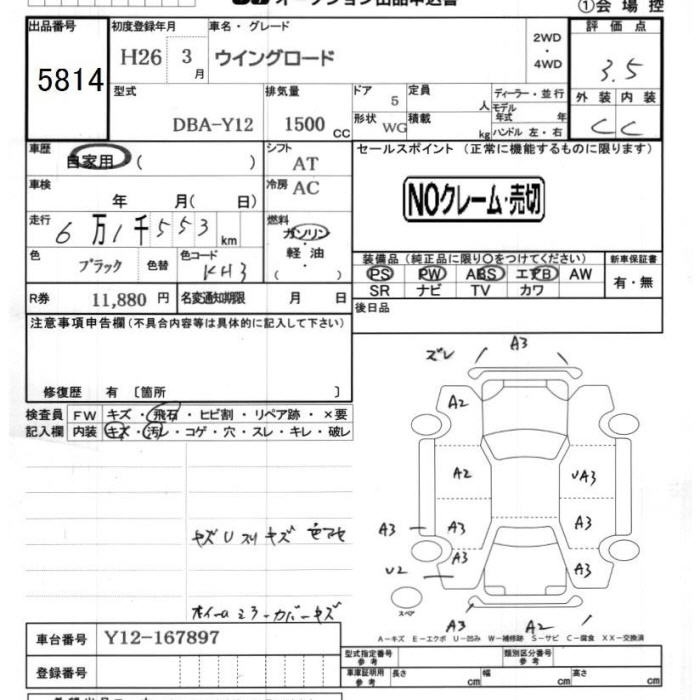 オークション出品申込書
①会場控
出品番号 5814
初度登録年月 H26 3月
車名・グレード ウイングロード
2WD・4WD
評価点 3.5
型式 DBA-Y12
排気量 1500 CC
ドア 5
形状 WG
定員 人
積載 kg
ディーラー・並行
モデル年式 年
ハンドル 左・右
外装 内装
C C
車歴 自家用 ( )
シフト AT
セールスポイント (正常に機能するものに限ります)
車検 年 月( 日)
冷房 AC
NOクレーム・売切
走行 6万1千553km
燃料 ガソリン・軽油 ( )
色 ブラック 色替
色コード KH3
装備品 (純正品に限り○をつけてください)
新車保証書
PS PW ABS エアB AW
有・無
SR ナビ TV カワ
R券 11,880円 名変通知期限 月 日
後日品
注意事項申告欄(不具合内容等は具体的に記入して下さい)
修復歴 有 〔箇所 〕
検査員記入欄
FW キズ・飛石・ヒビ割・リペア跡・×要
内装 キズ・汚レ・コゲ・穴・スレ・キレ・破レ
ズレ A3
A2
A2 UA3
A3 A3 A3
A3 A3
U2
スペア
A3 A2
A-キズ E-エクボ U-凹み W-補修跡 S-サビ C-腐食 XX-交換済
車台番号 Y12-167897
登録番号
型式指定番号 参考
類別区分番号 参考
車庫証明用 参考 長さ cm 幅 cm 高さ cm